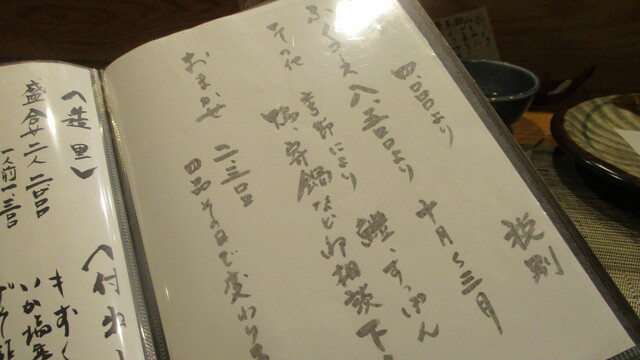 税別
十月〜三月
四、品より
ふくコース 八、五〇〇より
鱧、すっぽん
その他 季節により
鴨、寄鍋など御相談下
おまかせ 二、三〇〇
四品その日で変わりま
〈造里〉
盛合せ二人 二〇〇〇
一人前一、三〇〇
〈付出し
もずく
いか塩辛